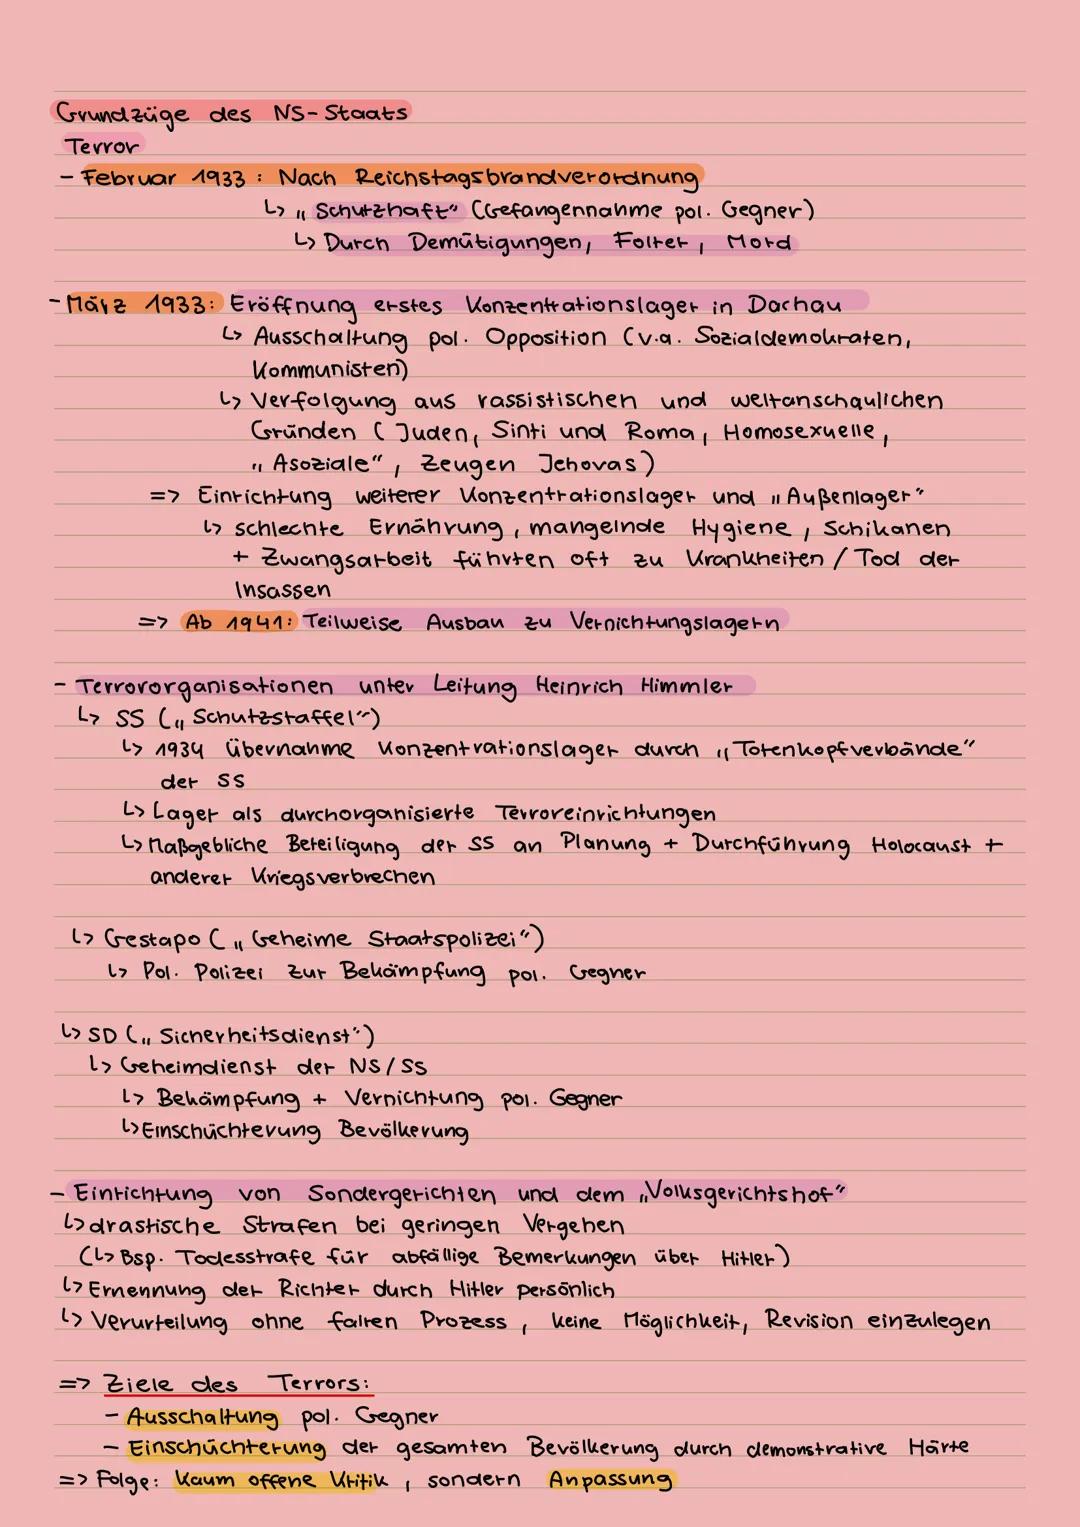 Grundzüge des NS-Staats
Terror
- Februar 1933: Nach Reichstagsbrandverordnung
↳ „Schutzhaft" (Gefangennahme pol. Gegner)
↳ Durch Demütigungen, Folter, Mord
- März 1933: Eröffnung erstes Konzentrationslager in Dachau
↳ Ausschaltung pol. Opposition (v.a. Sozialdemokraten,
Kommunisten)
↳ Verfolgung aus rassistischen und weltanschaulichen
Gründen (Juden, Sinti und Roma, Homosexuelle,
„Asoziale", Zeugen Jehovas)
=> Einrichtung weiterer Konzentrationslager und „Außenlager"
↳ schlechte Ernährung, mangelnde Hygiene, Schikanen
+ Zwangsarbeit führten oft zu Krankheiten / Tod der
Insassen
=> Ab 1941: Teilweise Ausbau zu Vernichtungslagern
- Terrororganisationen unter Leitung Heinrich Himmler
↳ SS („Schutzstaffel")
↳ 1934 Übernahme Konzentrationslager durch „Totenkopfverbände"
der SS
↳ Lager als durchorganisierte Terroreinrichtungen
↳ Maßgebliche Beteiligung der SS an Planung + Durchführung Holocaust +
anderer Kriegsverbrechen
↳ Gestapo („Geheime Staatspolizei")
↳ Pol. Polizei zur Bekämpfung pol. Gegner
↳ SD („Sicherheitsdienst")
↳ Geheimdienst der NS/SS
↳ Bekämpfung + Vernichtung pol. Gegner
↳ Einschüchterung Bevölkerung
- Einrichtung von Sondergerichten und dem „Volksgerichtshof"
↳ drastische Strafen bei geringen Vergehen
(↳ Bsp. Todesstrafe für abfällige Bemerkungen über Hitler)
↳ Ernennung der Richter durch Hitler persönlich
↳ Verurteilung ohne fairen Prozess, keine Möglichkeit, Revision einzulegen
=> Ziele des Terrors:
- Ausschaltung pol. Gegner
- Einschüchterung der gesamten Bevölkerung durch demonstrative Härte
=> Folge: Kaum offene Kritik, sondern Anpassung